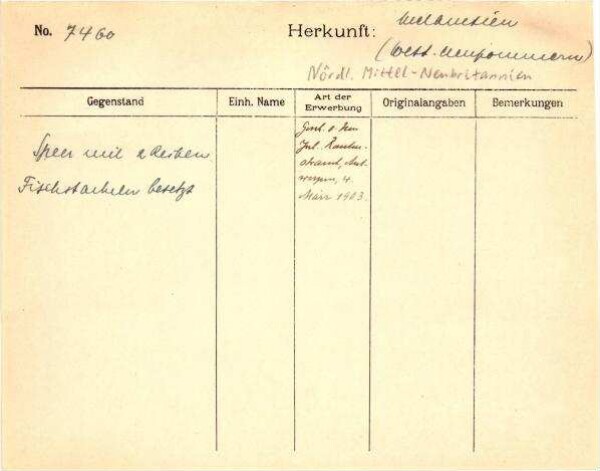 No. 7460
Herkunft: Melanesien
(West-Neupommern)
Nördl. Mittel-Neubritannien
Gegenstand Einh. Name Art der Erwerbung Originalangaben Bemerkungen
Speer mit derben
Fischstacheln besetzt
Gesch. v. dem
Jul.
Ant
werpen, 4.
März 1903.